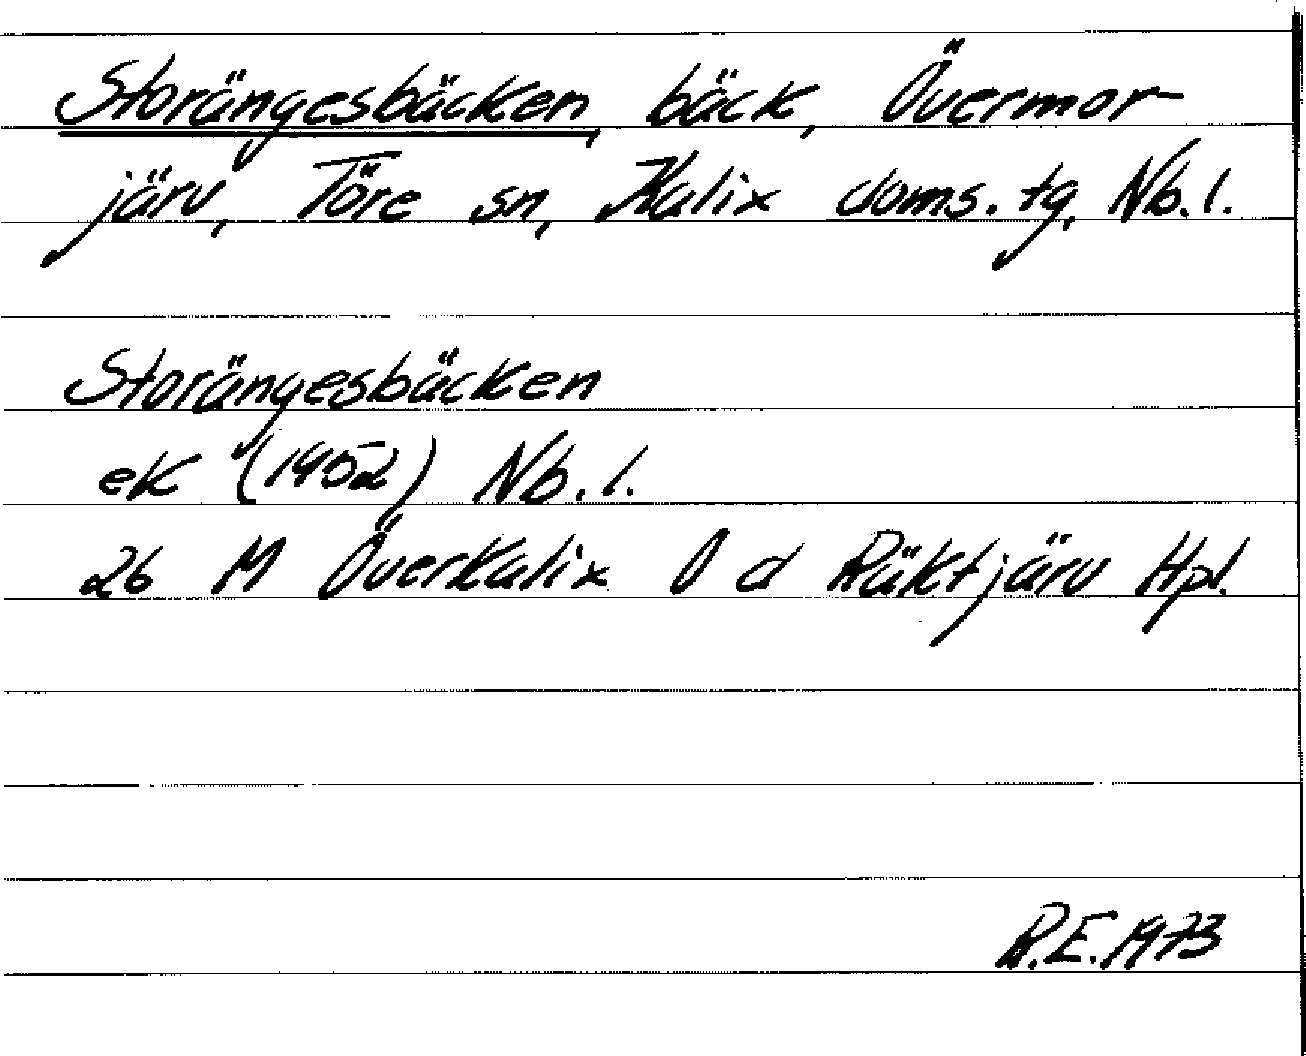 Storängesbäcken, bäck, Övermor-
järv, Töre sn, Kalix doms. tg, Nb. l.
Storängesbäcken
ek (1952) Nb. l.
26 M Överkalix O d Räktjärv Hpl.
R.E. 1973